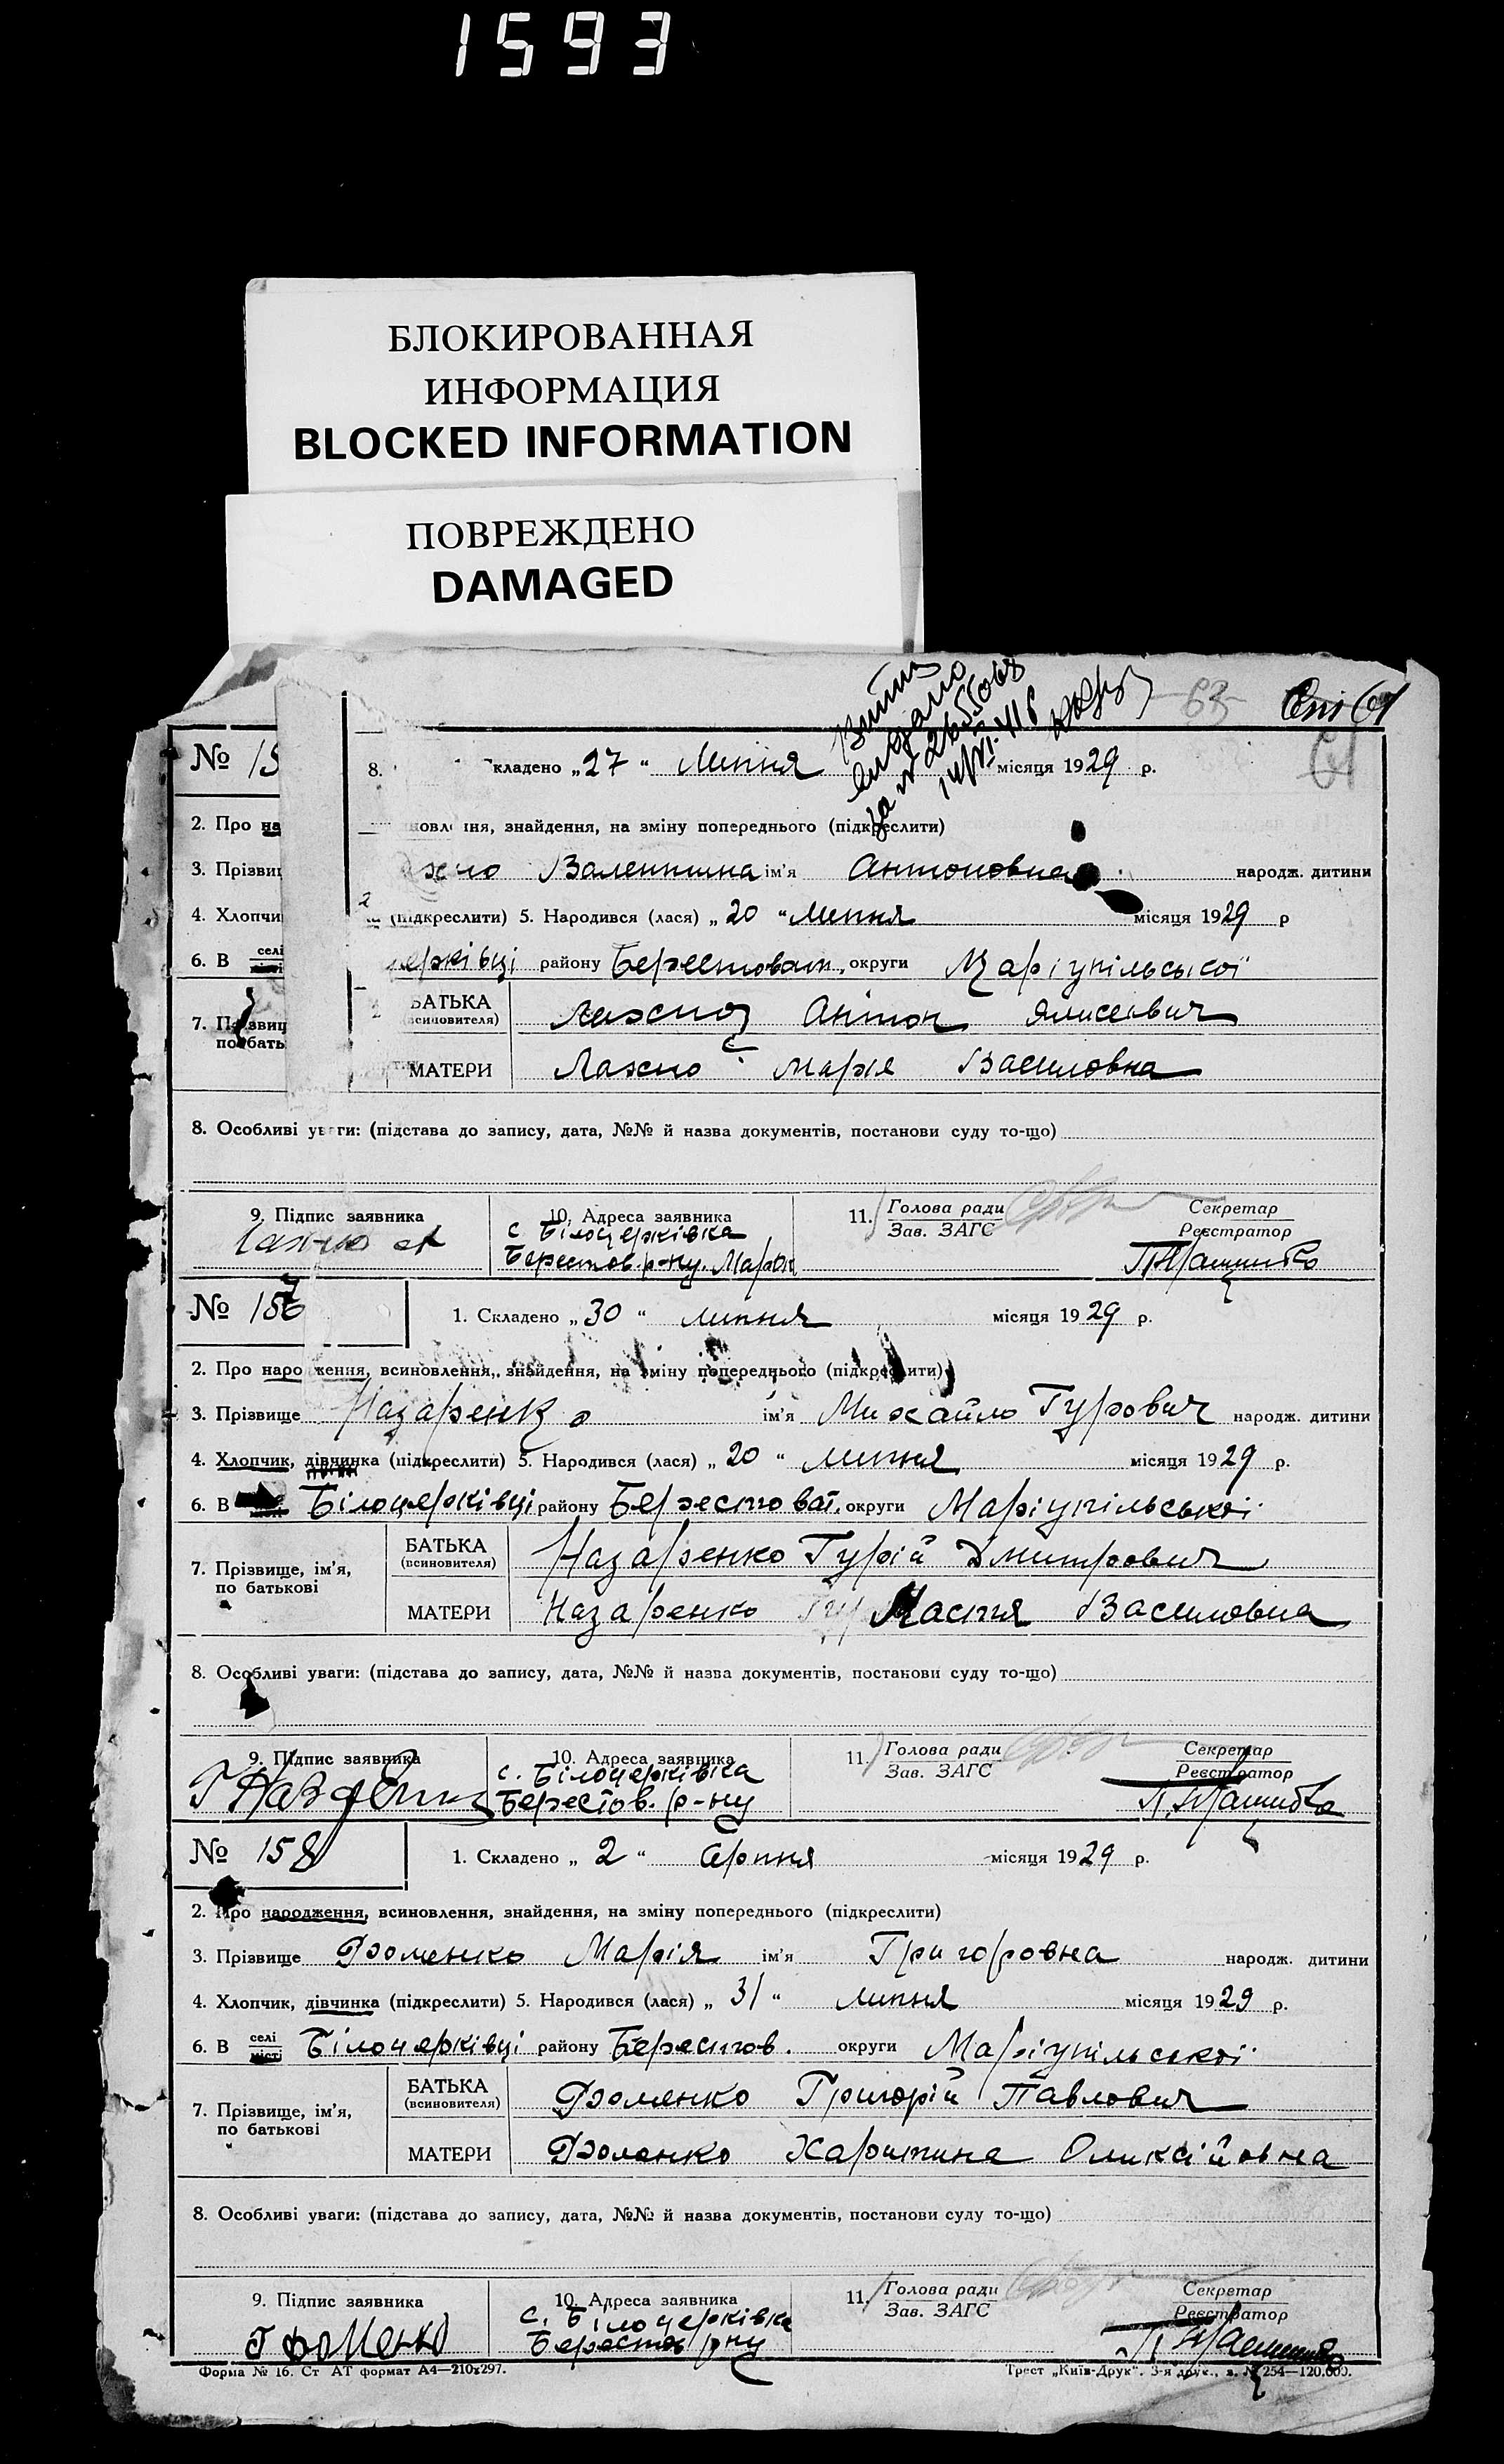 1593
БЛОКИРОВАННАЯ
ИНФОРМАЦИЯ
BLOCKED INFORMATION
ПОВРЕЖДЕНО
DAMAGED
63
61
№ 15
8. кладено „27“ Липня місяця 1929 р.
2. Про на ння, знайдення, на зміну попереднього (підкреслити)
3. Прізвищ хно Валентина ім'я Антоновна народж. дитини
4. Хлопчи (підкреслити) 5. Народився (лася) „20“ Липня місяця 1929 р
6. В селі ерківці району Берестоват. округи Маріупільської
БАТЬКА Лахно Антон
(всиновителя)
7. Прізвищ
по бать
МАТЕРИ Лахно Марія Василовна
8. Особливі уваги: (підстава до запису, дата, №№ й назва документів, постанови суду то-що)
9. Підпис заявника 10. Адреса заявника 11. Голова ради Секретар
Зав. ЗАГС Реєстратор
с Білоцерківка
Берестов. р-ну. Маріюп
№ 157 1. Складено „30“ липня місяця 1929 р.
2. Про народження, всиновлення, знайдення, на зміну попереднього (підкреслити)
3. Прізвище Назаренко ім'я Михайло Гурович народж. дитини
4. Хлопчик, дівчинка (підкреслити) 5. Народився (лася) „20“ липня місяця 1929 р.
6. В Білоцерківці району Берестоват. округи Маріупільської
БАТЬКА Назаренко Гурій Дмитрович
(всиновителя)
7. Прізвище, ім'я,
по батькові
МАТЕРИ Назаренко Настя Василовна
8. Особливі уваги: (підстава до запису, дата, №№ й назва документів, постанови суду то-що)
9. Підпис заявника 10. Адреса заявника 11. Голова ради Секретар
Зав. ЗАГС Реєстратор
с. Білоцерківка
Берестов. р-ну
№ 158 1. Складено „2“ Серпня місяця 1929 р.
2. Про народження, всиновлення, знайдення, на зміну попереднього (підкреслити)
3. Прізвище Фоменко Марія ім'я Григоровна народж. дитини
4. Хлопчик, дівчинка (підкреслити) 5. Народився (лася) „31“ липня місяця 1929 р.
6. В селі міст Білоцерківці району Берестов. округи Маріупільської
БАТЬКА Фоменко Григорій Павлович
(всиновителя)
7. Прізвище, ім'я,
по батькові
МАТЕРИ Фоменко Харитина Оликсійовна
8. Особливі уваги: (підстава до запису, дата, №№ й назва документів, постанови суду то-що)
9. Підпис заявника 10. Адреса заявника 11. Голова ради Секретар
Зав. ЗАГС Реєстратор
Г Фоменко с. Білоцерківка
Берестов р-ну
Форма № 16. Ст АТ формат А4—210x297. Трест „Київ-Друк". 3-я друк., з. № 254—120.000.